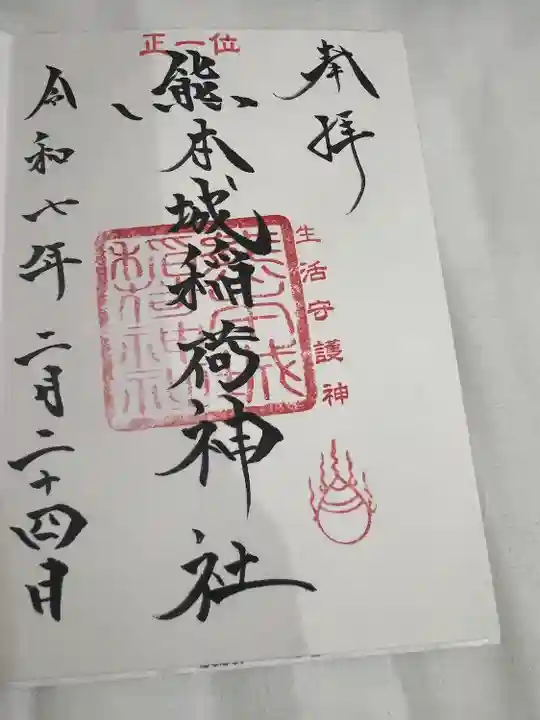 奉拝
生活守護神
正一位
熊本城稲荷神社
令和七年 二月二十四日